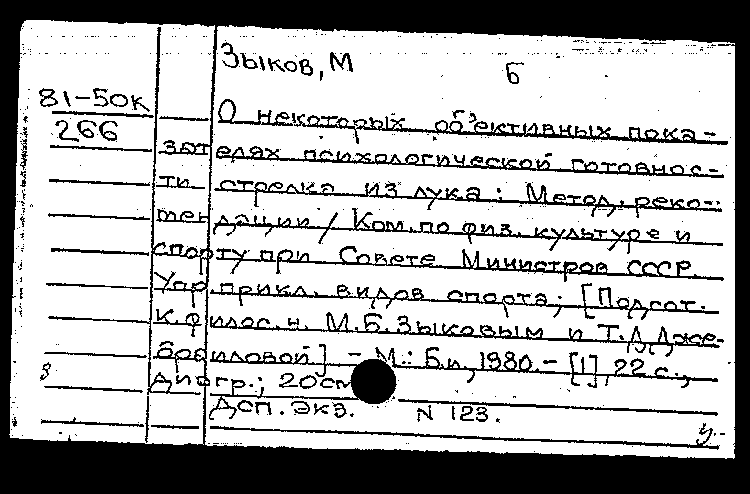 Зыков, М
Б
81-50К
266
О некоторых объективных пока-
зателях психологической готовнос-
ти стрелка из лука: Метод. реко-
мендации / Ком. по физ. культуре и
спорту при Совете Министров СССР.
Упр. прикл. видов спорта; [Подгот.
к. филос. н. М.Б. Зыковым и Т.Д. Дже-
браиловой] - М.: Б.и., 1980. - [1], 22 с.,
диагр.; 20 см
Доп. экз. N 123.